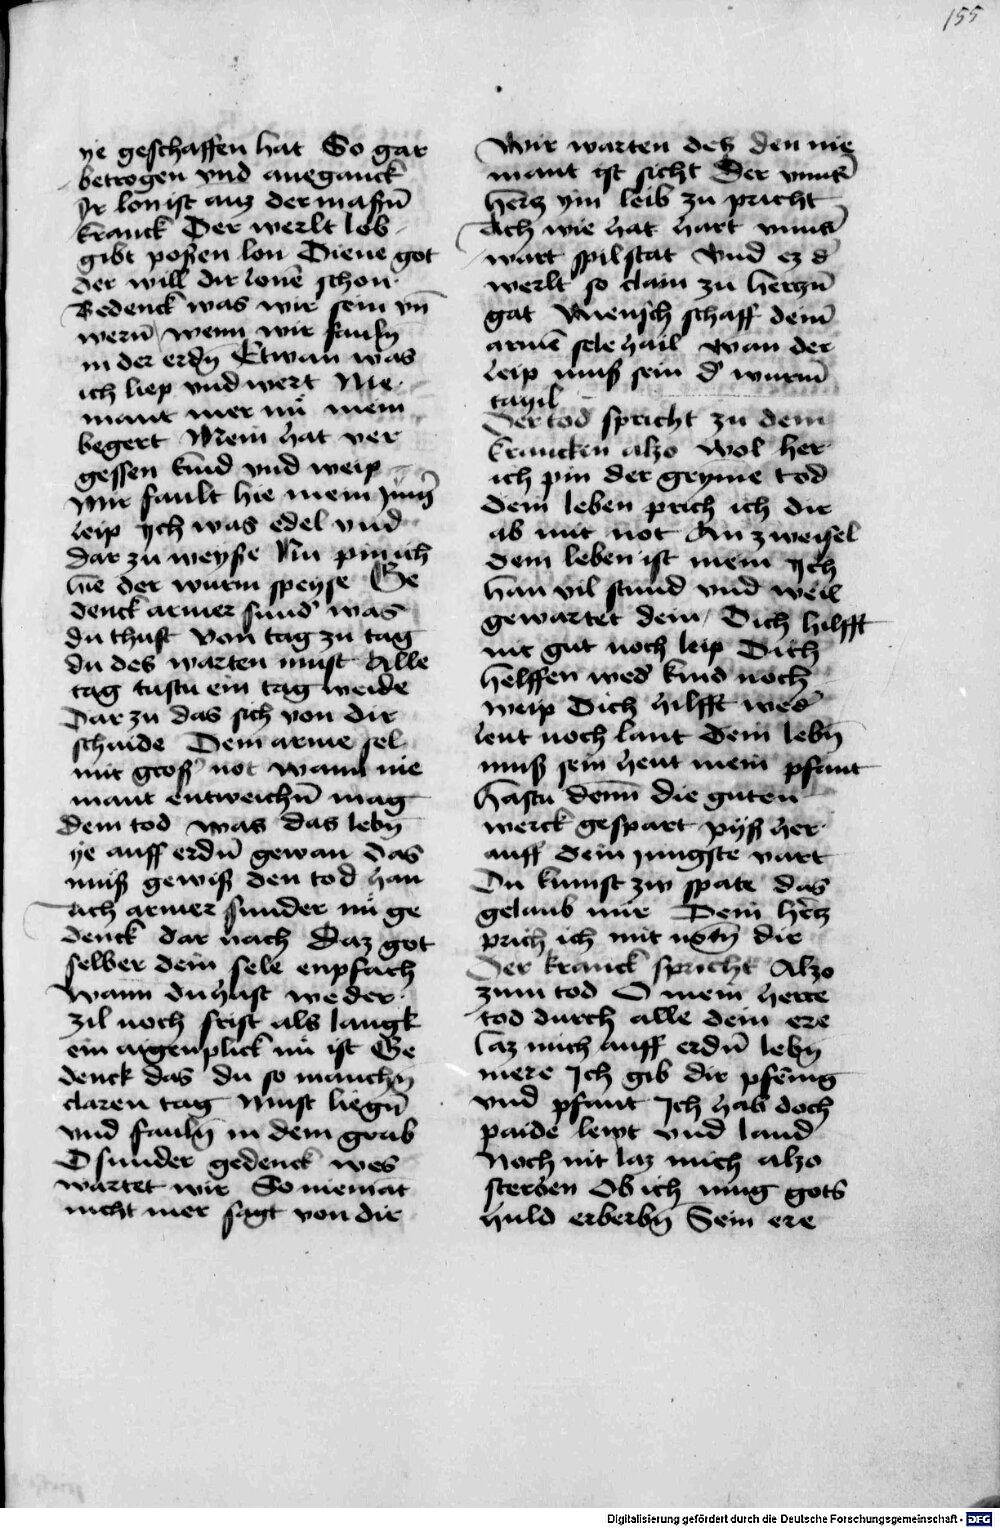 155
ye geschaffen hat So gar
betrogen vnd aneganck
Ir lon ist auz der masñ
kranck Der werlt lob
gibt posen lon Diene got
der will dir lonē schon
Bedenck was wir sein vñ
wern̄ wenn wir fauln̄
in der erdn̄ Etwan was
ich liep vnd wert Nie
mant mer nů mein
begert Mein hat ver
gessen kind vnd weip
Mir fault hie mein
leip Ich was edel vnd
dar zu weyse Nu pin ich
hie der wurm speyse Ge
denck armer sund' was
du thust von tag zu tag
du des warten must Alle
tag tustu ein tag weide
Dar zu das sich von dir
schaide Dein arme sel
mit gross' not wann nie
mant entweichn̄ mag
dem tod was das lebn̄
ye auff erdn̄ gewan das
muß gewiß den tod han
Ach armer sunder nů ge
denck dar nach Daz got
selber dein sele enpfach
Wann du hast weder
zil noch frist als langk
ein augenplick nů ist Ge
denck das du so manchn̄
claren tag Must liegn̄
vnd fauln̄ in dem grab
O sunder gedenck wes
wartet wir So niemāt
nicht mer sagt von dir
Wir warten dez den nie
mant ist sicht Der vnns'
hertz ym leib zu pricht
Ach wie hat hart vnns'
wart spil stat Vnd ez d'
werlt so clain zu herczn̄
gat Mensch schaff deinē
armē sele hail wan der
leip muß sein d' wurm̄
tayil
Der tod spricht zu dem
krancken alzo Wol her
ich pin der gryme tod
dem leben prich ich dir
ab mit not An zweifel
dem leben ist mein Ich
han vil stund vnd weil
gewartet dein Dich hilfft
nit gut noch leip Dich
helffen wed' kind noch
weip Dich hilfft wed'
leut noch laut Dein lebn̄
muß sein heut mein pfant
Hastu denn die guten
werck gespart pyß her
auff dein jungste vart
Du kumst zw spate das
gelaub mir Dein hertz
prich ich mit notn̄ dir
Der kranck spricht Alzo
zum tod O mein herre
tod durch alle dein ere
Laz mich auff erdn̄ lebn̄
mere Ich gib dir pfēnig
vnd pfant Ich hab doch
paide lewt vnd land
Noch nit laz mich alzo
sterben Ob ich mug gots
huld erberbn̄ Sein ere
Digitalisierung gefördert durch die Deutsche Forschungsgemeinschaft - DFG